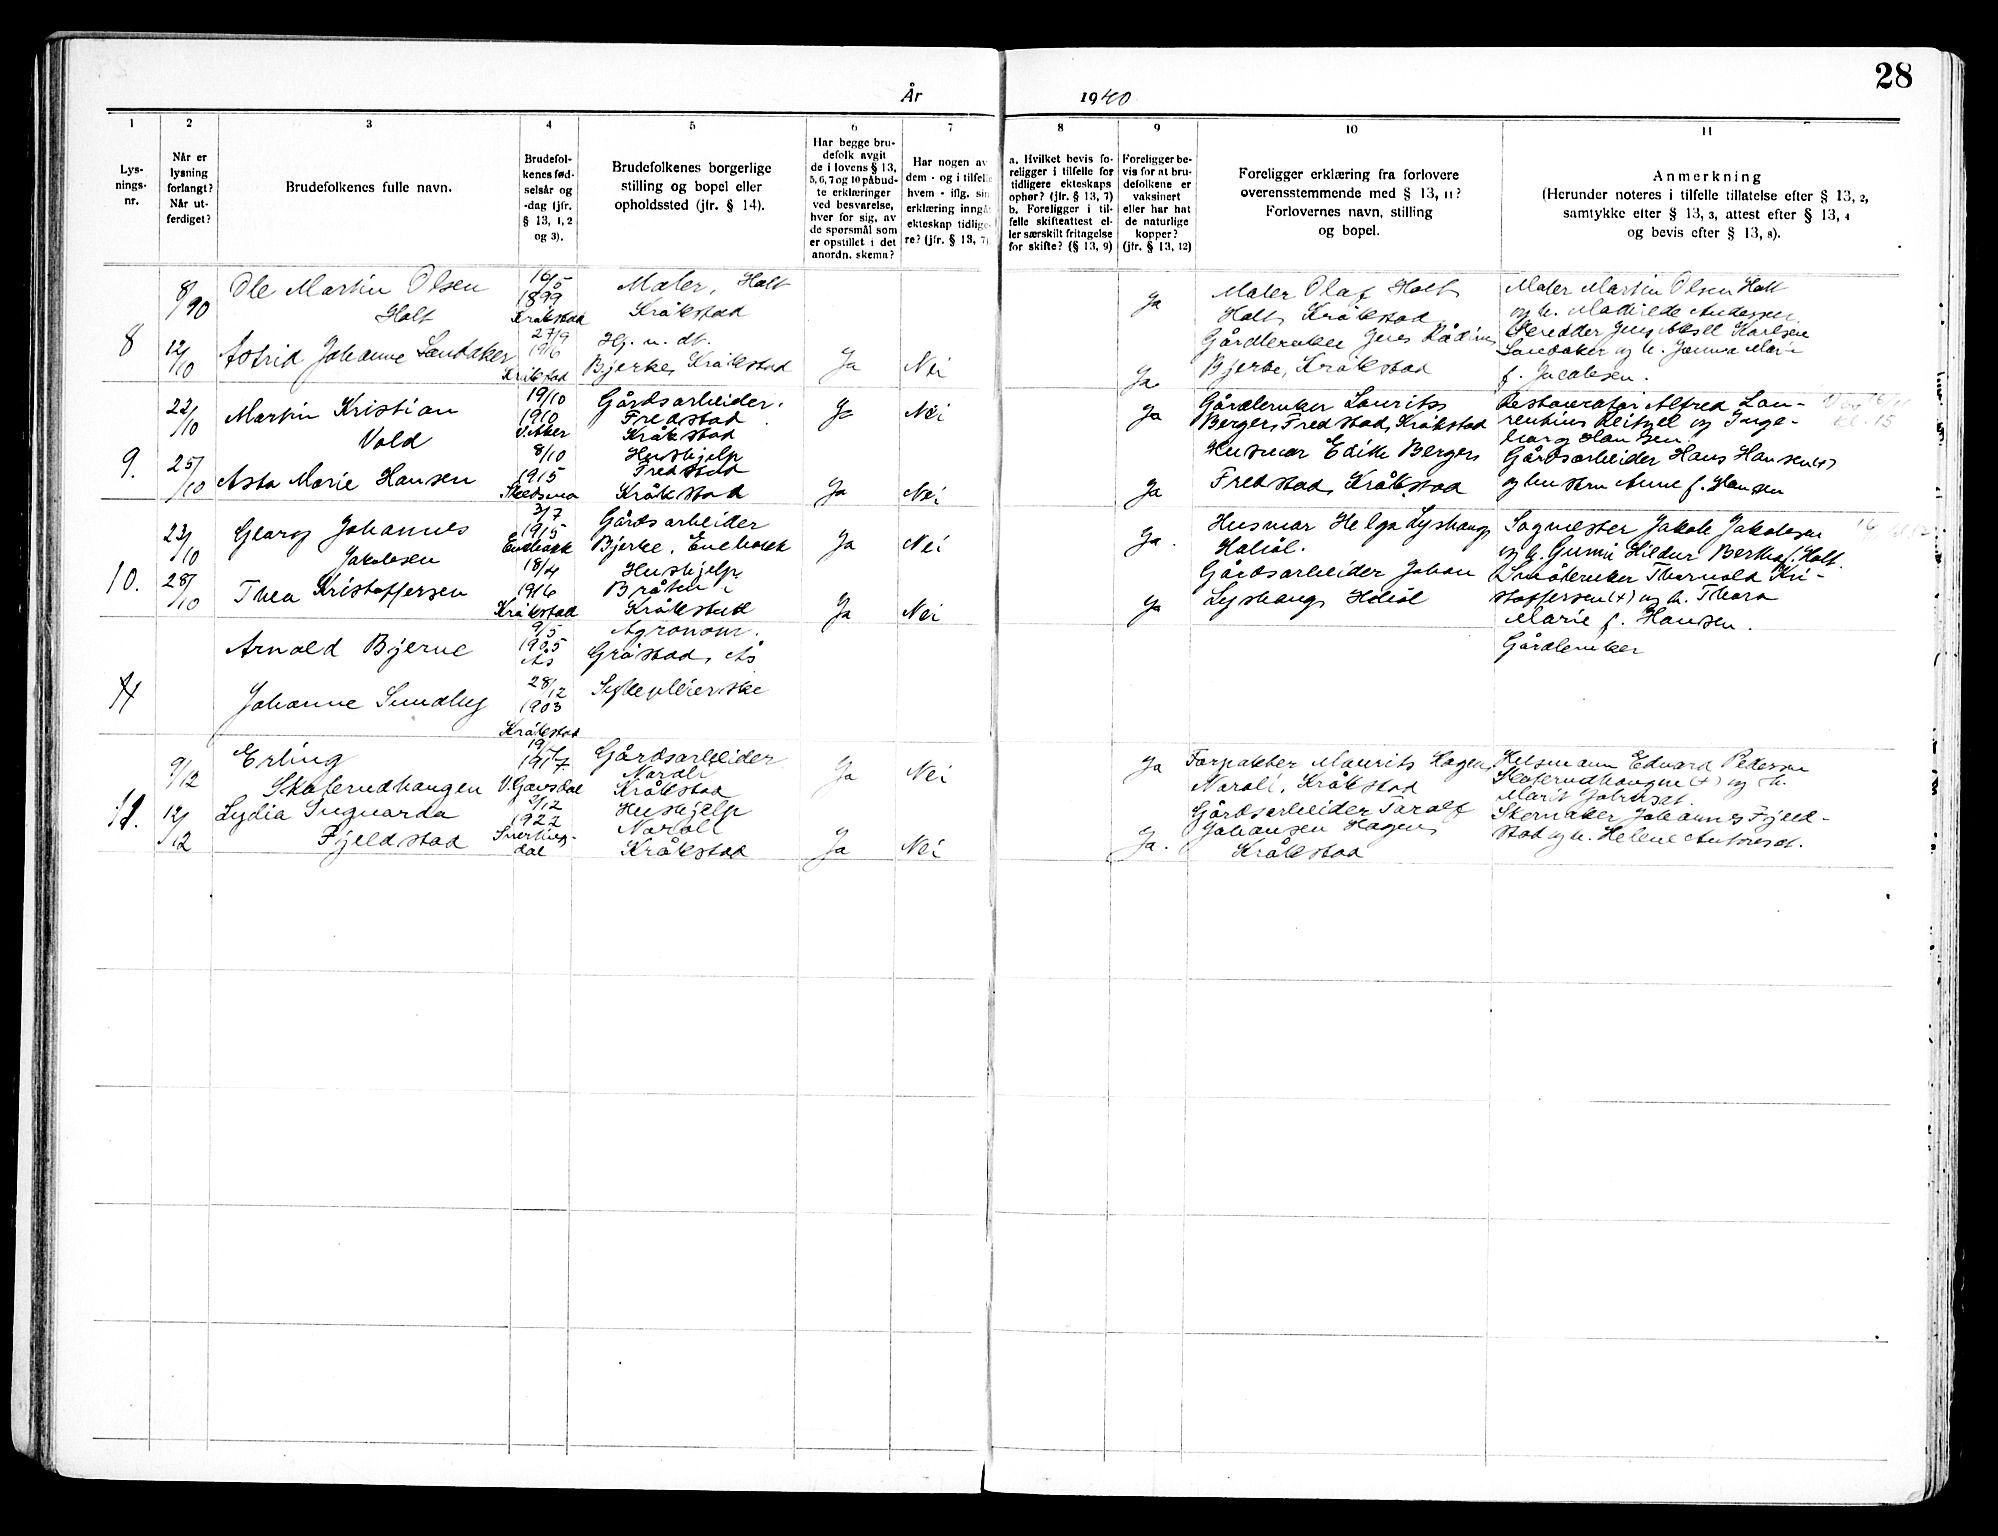 28
År 1940
1 2 3 4 5 6 7 8 9 10 11
Lys-
nings-
nr.
Når er
lysning
forlangt?
Når ut-
ferdiget?
Brudefolkenes fulle navn.
Brudefol-
kenes fød-
selsår og
-dag (jfr.
§ 13, 1, 2
og 3).
Brudefolkenes borgerlige
stilling og bopel eller
opholdssted (jfr. § 14).
Har begge bru-
defolk avgit
de i lovens § 13,
5, 6, 7 og 10 påbud-
te erklæringer
ved besvarelse,
hver for sig, av
de spørsmål som
er opstillet i det
anordn. skema?
Har nogen av
dem - og i tilfelle
hvem - iflg. sin
erklæring inngå
ekteskap tidlige-
re? (jfr. § 13, 7)
a. Hvilket bevis fo-
religger i tilfelle for
tidligere ekteskaps
ophør? (jfr. § 13, 7)
b. Foreligger i til-
felle skifteattest el-
ler særskilt fritagelse
for skifte? (§ 13, 9)
Foreligger be-
vis for at bru-
defolkene er
vaksinert
eller har hat
de naturlige
kopper?
(jfr. § 13, 12)
Foreligger erklæring fra forlovere
overensstemmende med § 13, 11?
Forlovernes navn, stilling
og bopel.
Anmerkning
(Herunder noteres i tilfelle tillatelse efter § 13, 2,
samtykke efter § 13, 3, attest efter § 13, 4
og bevis efter § 13, 8).
8
8/10
12/10
Ole Martin Olsen
Holt
16/5
1899
Kråkstad
Maler, Holt
Kråkstad
Ja
Maler Olaf Holt
Holt, Kråkstad
Maler Martin Olsen Holt
og h. Madilde Andersen
Astrid Johanne Sandaker
27/9
1916
Kråkstad
Hj. v. dt.
Bjerke, Kråkstad
Ja
Nei
Ja.
Gårdbruker Jens Rådim
Bjerke, Kråkstad
Jens Aksel Karlsen
Sandaker og h. Janna Mari-
f. Jacobsen.
9.
22/10
25/10
Martin Kristian
Vold
19/10
1910
V. Aker
Gårdsarbeider.
Fredstad
Kråkstad
Ja
Nei
Ja
Gårdbruker Laurits
Berger, Fredstad, Kråkstad
Restauratør Alfred Lau-
rentius Reitzel og Inge-
borg Hansen.
kl. 15
Asta Marie Hansen
8/10
1915
Skedsmo
Hushjelp
Fredstad
Kråkstad
Ja
Nei
Ja
Husmor Edith Berger
Fredstad, Kråkstad
Gårdsarbeider Hans Hansen(+)
og hustru Anne f. Hansen
10.
23/10
28/10
Georg Johannes
Jakobsen
3/7
1915
Enebakk
Gårdsarbeider
Bjerke, Enebakk
Ja
Nei
Ja.
Husmor Helga Lyshaug
Holiøl.
Sagmester Jakob Jakobsen
og h. Gunni Hildur Bertha f. Holt.
Thea Kristoffersen
18/4
1916
Kråkstad
Hushjelp
Bråten
Kråkstad
Ja
Nei
Ja
Gårdsarbeider Johan
Lyshaug, Holiøl
Småbruker Thorvald Kri-
stoffersen(+) og h. Thora
Marie f. Hansen.
Arnold Bjerve
9/5
1905
Ås
Agronom.
Gråstad, Ås
Gårdbruker
Johanne Sundby
28/12
1903
Kråkstad
Sykepleierske
11.
9/12
12/12
Erling
Skoterudhaugen
1917
V. Gausdal
Gårdsarbeider
Naroli
Kråkstad
Ja
Nei
Ja
Forpakter Maurits Hagen,
Naroli, Kråkstad
Husmann Edvard Pedersen
Skoterudhaugne (+) og h.
Marit Johnsdt.
Lydia Ingvarda
Fjeldstad
3/12
1922
Snertings-
dal
Hushjelp
Naroli
Kråkstad
Ja
Nei
Ja.
Gårdsarbeider Toralf
Johansen Hagen
Kråkstad
Skomaker Johannes Fjeld-
stad og h. Helene Antonsdt.